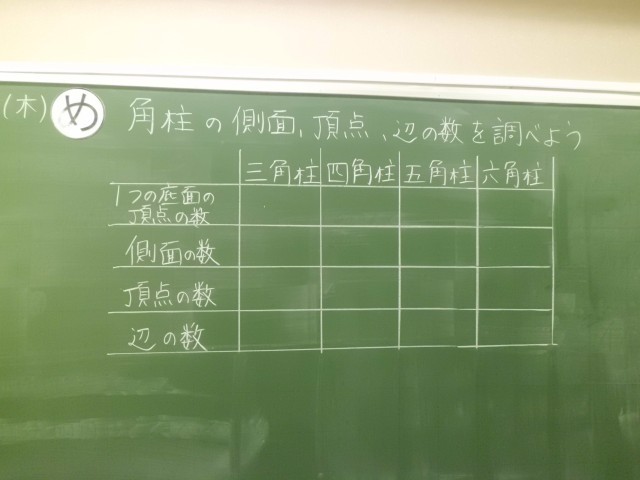 (木) め 角柱の側面、頂点、辺の数を調べよう
三角柱 四角柱 五角柱 六角柱
1つの底面の
頂点の数
側面の数
頂点の数
辺の数